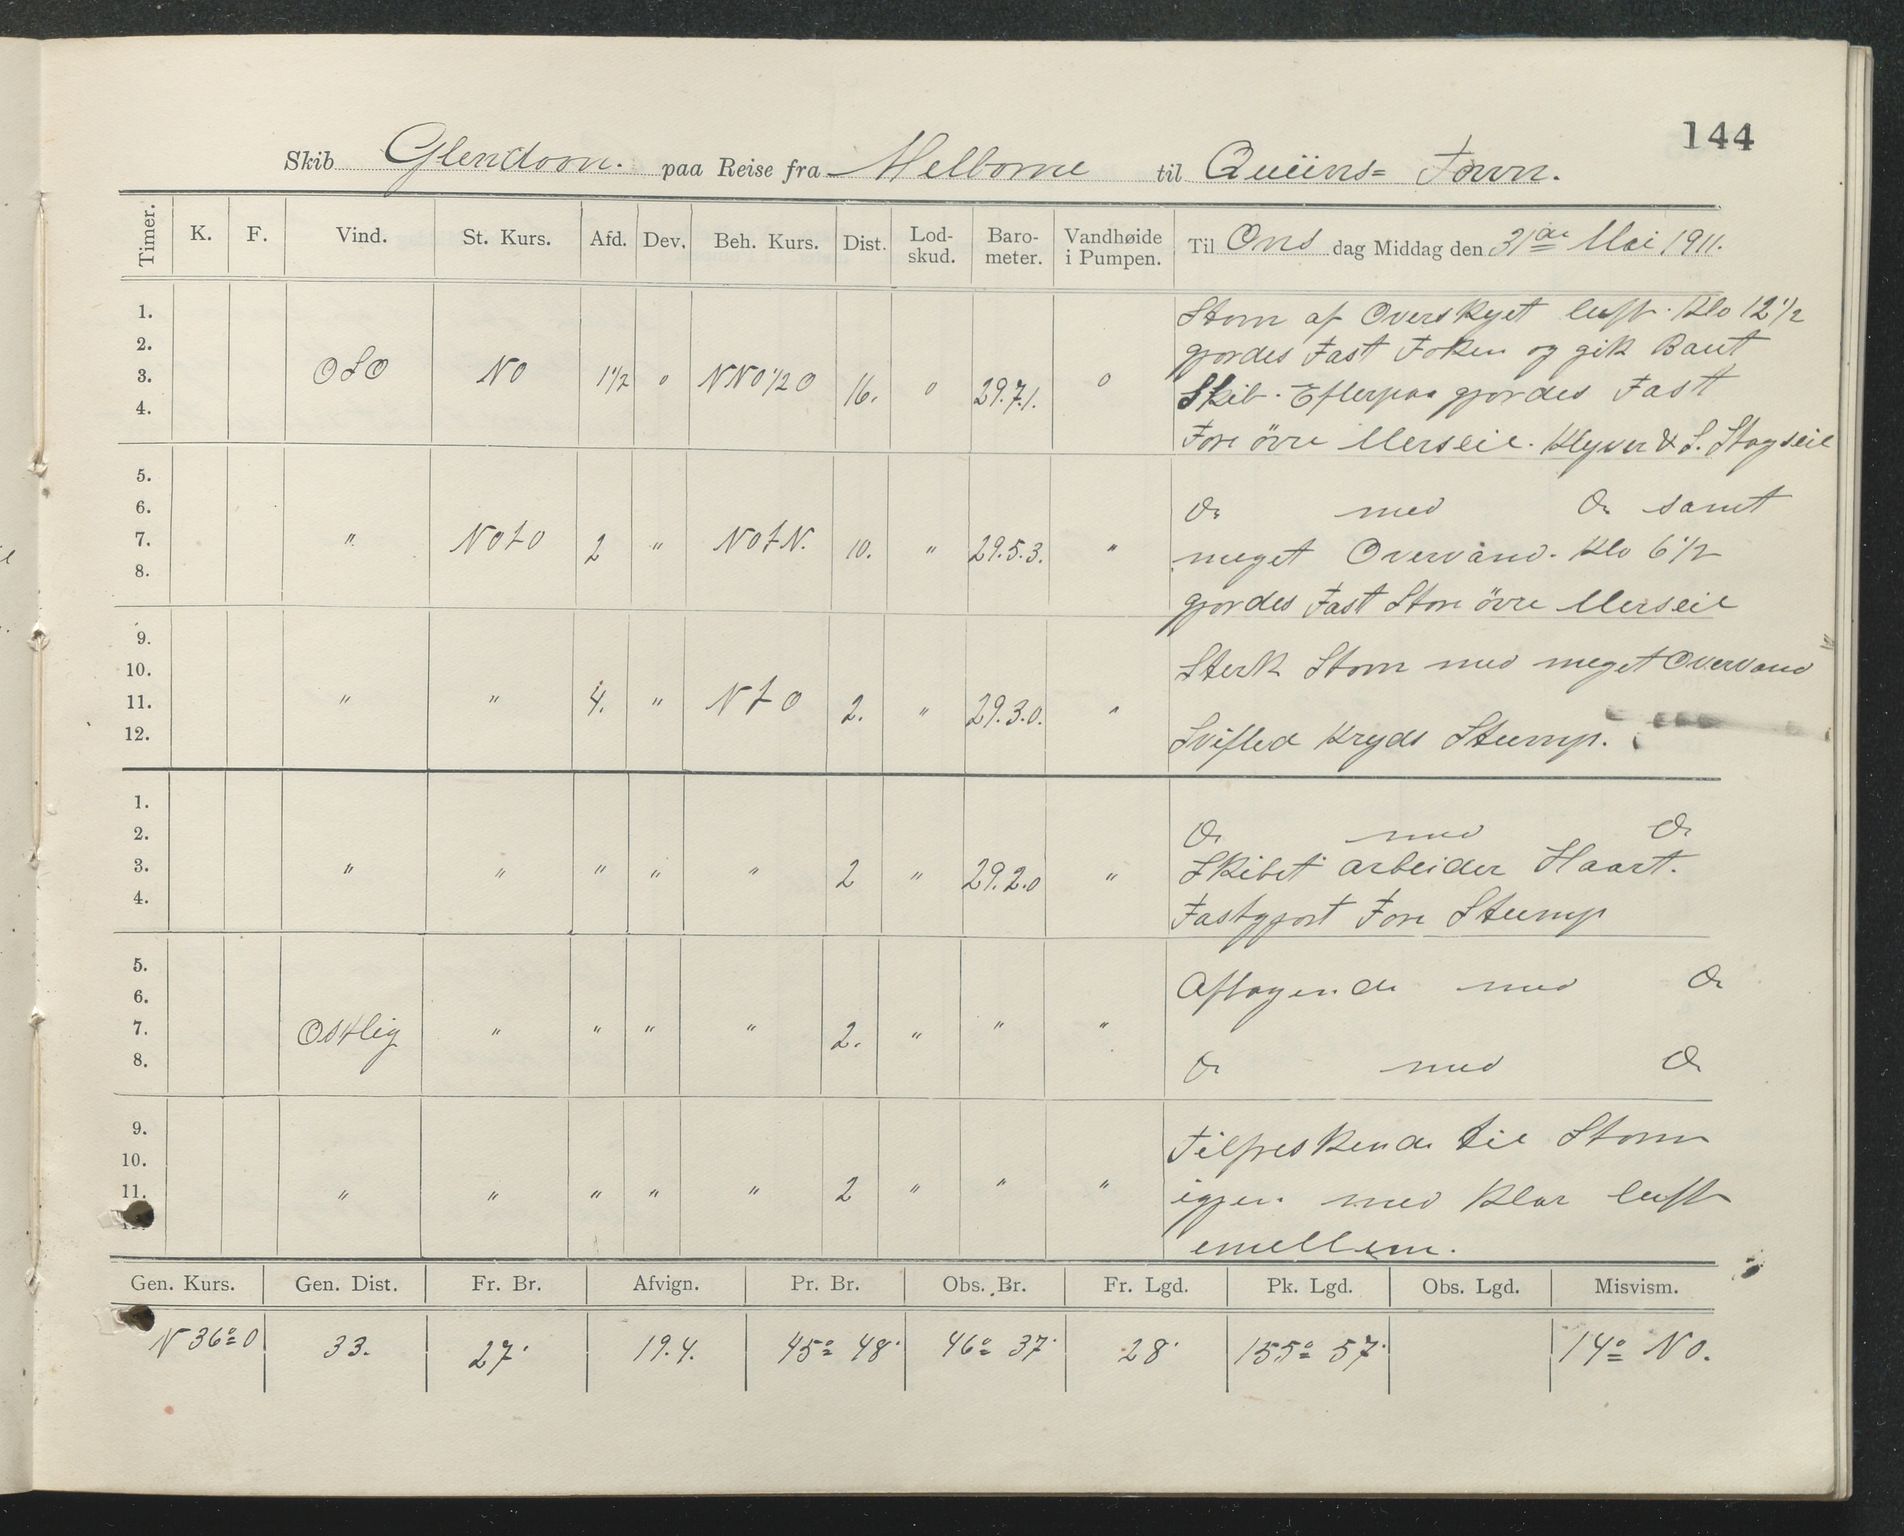 144
Skib Glendoon. paa Reise fra Melborne til Queüns= Town.
Timer. K. F. Vind. St. Kurs. Afd. Dev. Beh. Kurs. Dist. Lod-skud. Baro-meter. Vandhøide i Pumpen. Til Ons dag Middag den 31de Mai 1911.
1. Storm af Overskyet luft. Klo 12 1/2
2. gjordes Fast Foken og gik Baut
3. OSO NO 1 1/2 0 NNO 1/2 O 16. 0 29.7.1. 0 Skib. Efterpaa gjordes Fast
4. Fore övre Merseil. Klyver & S. Stagseil
5.
6. Do med Do samt
7. " NOtO 2 " NOtN. 10. " 29.5.3. " meget Overvand. Klo 6 1/2
8. gjordes Fast Store övre Merseil
9.
10. Sterk Storm med meget Overvand
11. " " 4. " NtO 2. " 29.3.0. "
12. Svifled Kryds Stump.
1.
2. Do med Do
3. " " " " " 2 " 29.2.0 " Skibet arbeider Haart.
4. Fastgjort Fore Stump
5.
6. Aftagende med Do
7. Ostlig " " " " 2. " " "
8. Do med Do
9. Tilfreskende til Storm
10.
11. " " " " " 2 " " " igjen med Klar luft
12. emellem.
Gen. Kurs. Gen. Dist. Fr. Br. Afvign. Pr. Br. Obs. Br. Fr. Lgd. Pk. Lgd. Obs. Lgd. Misvism.
N 36° O 33. 27' 19.4. 45° 48' 46° 37' 28' 155° 57' 14° NO.